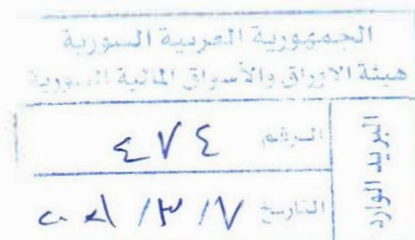 الجمهورية العربية السورية
هيئة الاوراق والأسواق المالية السورية
البريد الوارد
الرقم ٤٧٤
التاريخ ٧/٣/